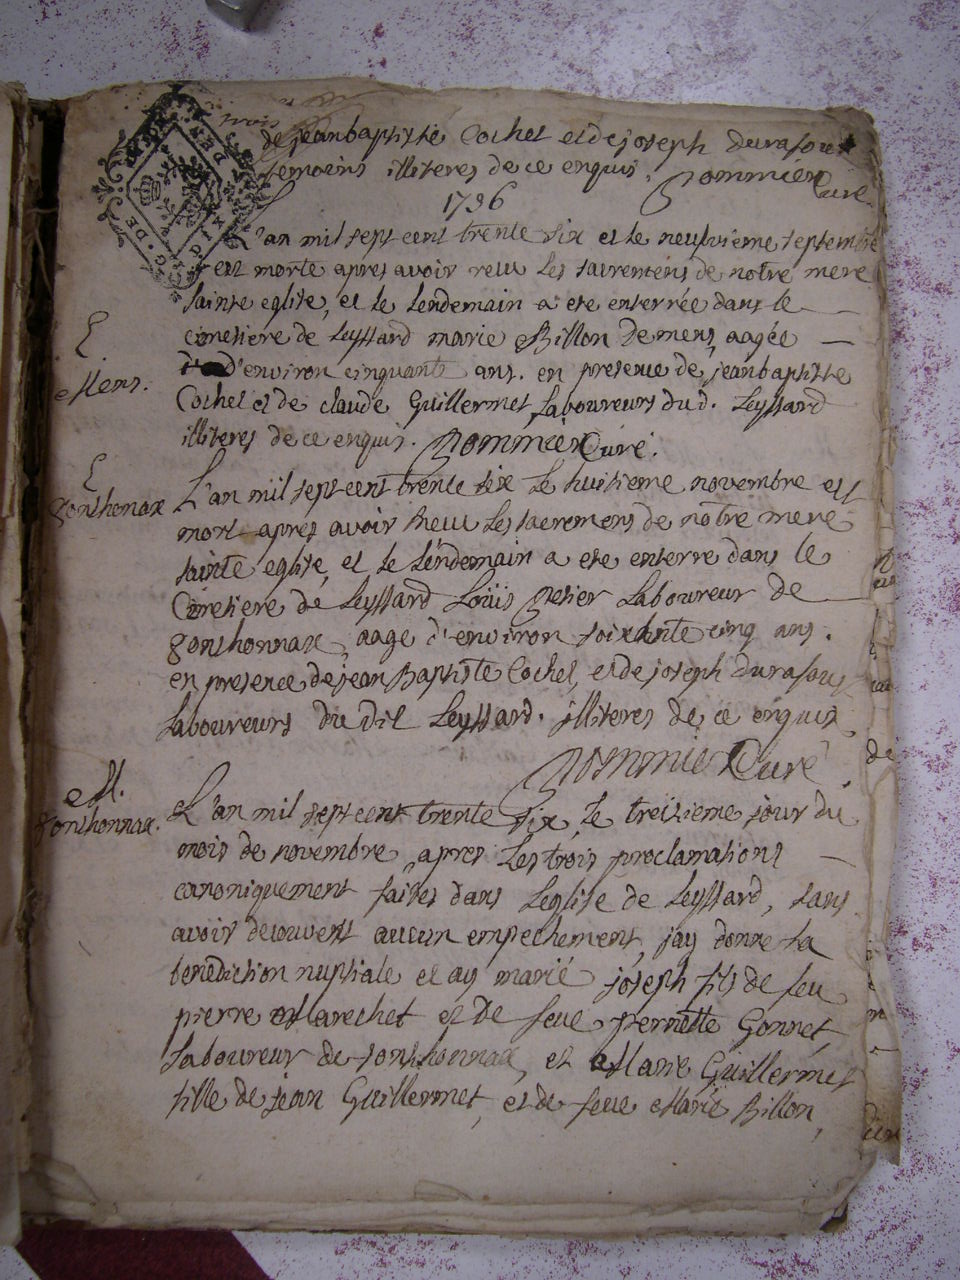 trois
de jeanbaptiste Cochet et de joseph durafour
temoins illiteres de ce enquis. Pommier Curé
1736
L'an mil sept cent trente six et le neufvieme septembre
est morte apres avoir receu les sacremens de notre mere
sainte eglise, et le lendemain a ete enterrée dans le
cimetiere de Leyssard marie Billon de mens, aagée
d'environ cinquante ans. en presence de jeanbaptiste
Cochet et de claude Guillermet Laboureurs dud. Leyssard
illiteres de ce enquis. Pommier Curé.
E
Mens.
L'an mil sept cent trente six le huitieme novembre est
mort apres avoir receu les sacremens de notre mere
sainte eglise, et le lendemain a ete enterre dans le
Cimetiere de Leyssard Loüis Laboureur de
Sonthonnax, aage d'environ soixante cinq ans.
en presence de jean Baptiste Cochet, et de joseph durafour
Laboureurs du dit Leyssard. illiteres de ce enquis
Pommier Curé
E
Sonthonax
L'an mil sept cent trente six, le treizieme jour du
mois de novembre, apres les trois proclamations
canoniquement faites dans L'eglise de Leyssard, sans
avoir decouvert aucun empechement, jay donne la
benediction nuptiale et ay marié joseph fils de feu
pierre Marechet et de feue pernette Gonnet,
Laboureur de sonthonnax, et Marie Guillermet
fille de jean Guillermet, et de feue Marie Billon,
M.
Sonthonnax.